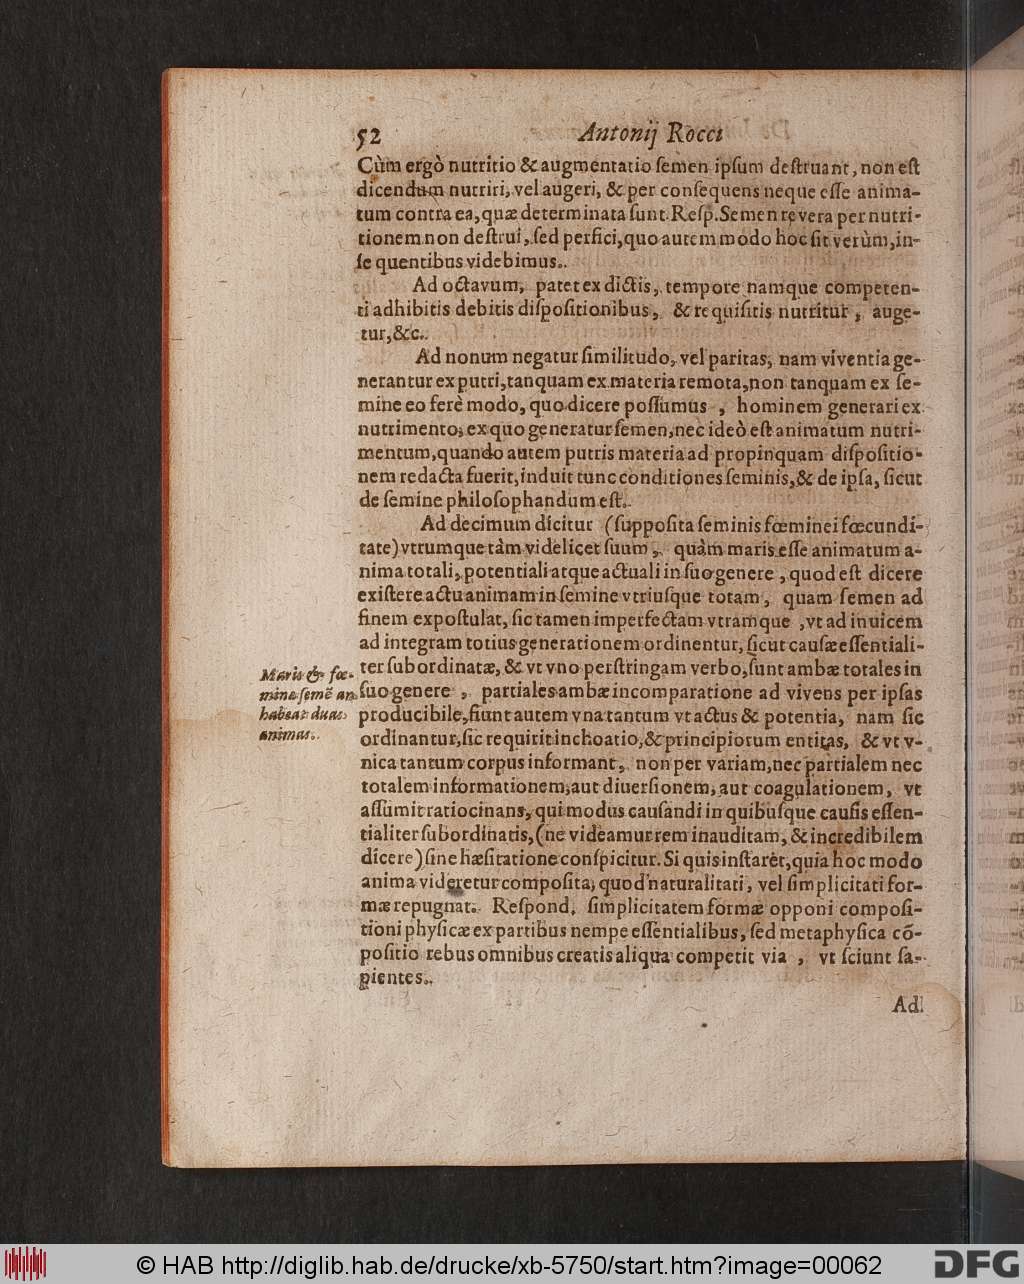 52 Antonij Rocci
Cùm ergò nutritio & augmentatio ſemen ipſum deſtruant, non eſt
dicendum nutriri, vel augeri, & per conſequens neque eſſe anima-
tum contra ea, quæ determinata ſunt. Reſp. Semen revera per nutri-
tionem non deſtrui, ſed perfici, quo autem modo hoc ſit verùm, in-
ſequentibus videbimus.
Ad octavum, patet ex dictis, tempore namque competen-
ti adhibitis debitis diſpoſitionibus, & requiſitis nutritur, auge-
tur, &c.
Ad nonum negatur ſimilitudo, vel paritas, nam viventia ge-
nerantur ex putri, tanquam ex materia remota, non tanquam ex ſe-
mine eo ferè modo, quo dicere poſſumus, hominem generari ex
nutrimento, ex quo generatur ſemen, nec ideò eſt animatum nutri-
mentum, quando autem putris materia ad propinquam diſpoſitio-
nem redacta fuerit, induit tunc conditiones ſeminis, & de ipſa, ſicut
de ſemine philoſophandum eſt.
Ad decimum dicitur (ſuppoſita ſeminis fœminei fœcundi-
tate) vtrumque tàm videlicet ſuum, quàm maris eſſe animatum a-
nima totali, potentiali atque actuali in ſuo genere, quod eſt dicere
exiſtere actu animam in ſemine vtriuſque totam, quam ſemen ad
finem expoſtulat, ſic tamen imperfectam vtramque, vt ad inuicem
ad integram totius generationem ordinentur, ſicut cauſæ eſſentiali-
ter ſubordinatæ, & vt vno perſtringam verbo, ſunt ambæ totales in
ſuo genere, partiales ambæ in comparatione ad vivens per ipſas
producibile, fiunt autem vna tantum vt actus & potentia, nam ſic
ordinantur, ſic requirit inchoatio, & principiorum entitas, & vt v-
nica tantum corpus informant, non per variam, nec partialem nec
totalem informationem, aut diuerſionem, aut coagulationem, vt
aſſumit ratiocinans, qui modus cauſandi in quibuſque cauſis eſſen-
tialiter ſubordinatis, (ne videamur rem inauditam, & incredibilem
dicere) ſine hæſitatione conſpicitur. Si quis inſtarèt, quia hoc modo
anima videretur compoſita, quod naturalitati, vel ſimplicitati for-
mæ repugnat. Reſpond. ſimplicitatem formæ opponi compoſi-
tioni phyſicæ ex partibus nempe eſſentialibus, ſed metaphyſica cõ-
poſitio rebus omnibus creatis aliqua competit via, vt ſciunt ſa-
pientes.
Maris & fœ-
minæ ſemẽ an
habeat duas
animas.
Ad
© HAB http://diglib.hab.de/drucke/xb-5750/start.htm?image=00062
DFG